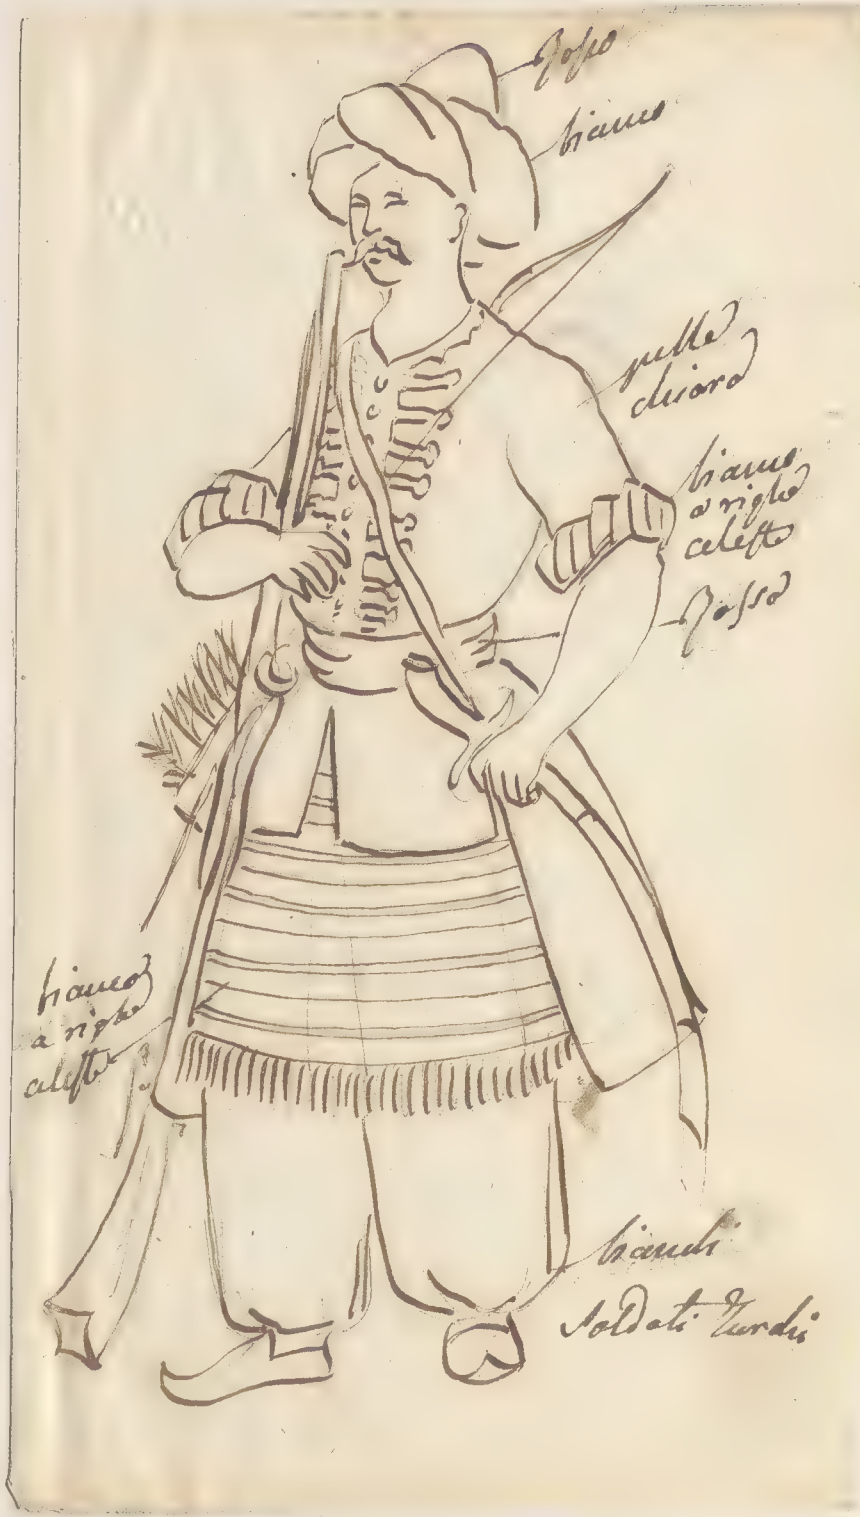 Rosso
bianco
pelle
chiara
bianco
a righe
celeste
Rossa
bianco
a righe
celeste
bianchi
Soldati Turchi